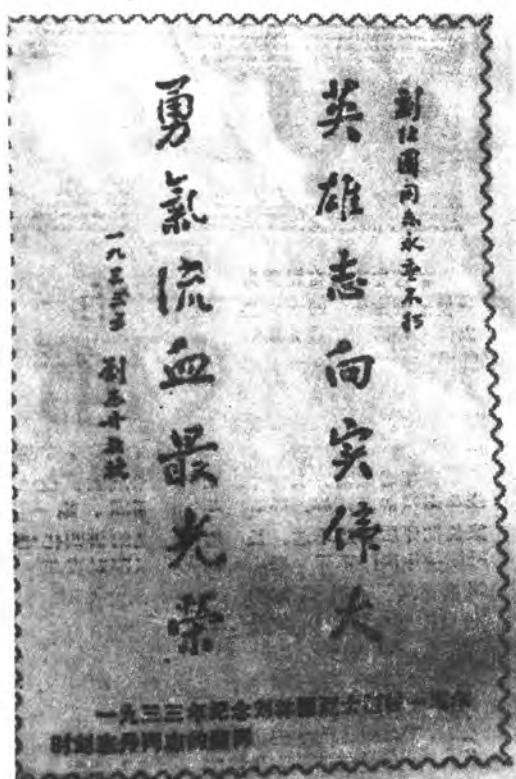 刘仕国同志永垂不朽
英雄志向实偉大
勇氣流血最光荣
一九三三年 劉志丹敬挽
一九三三年纪念刘仕國烈士
时刘志丹同志的题词